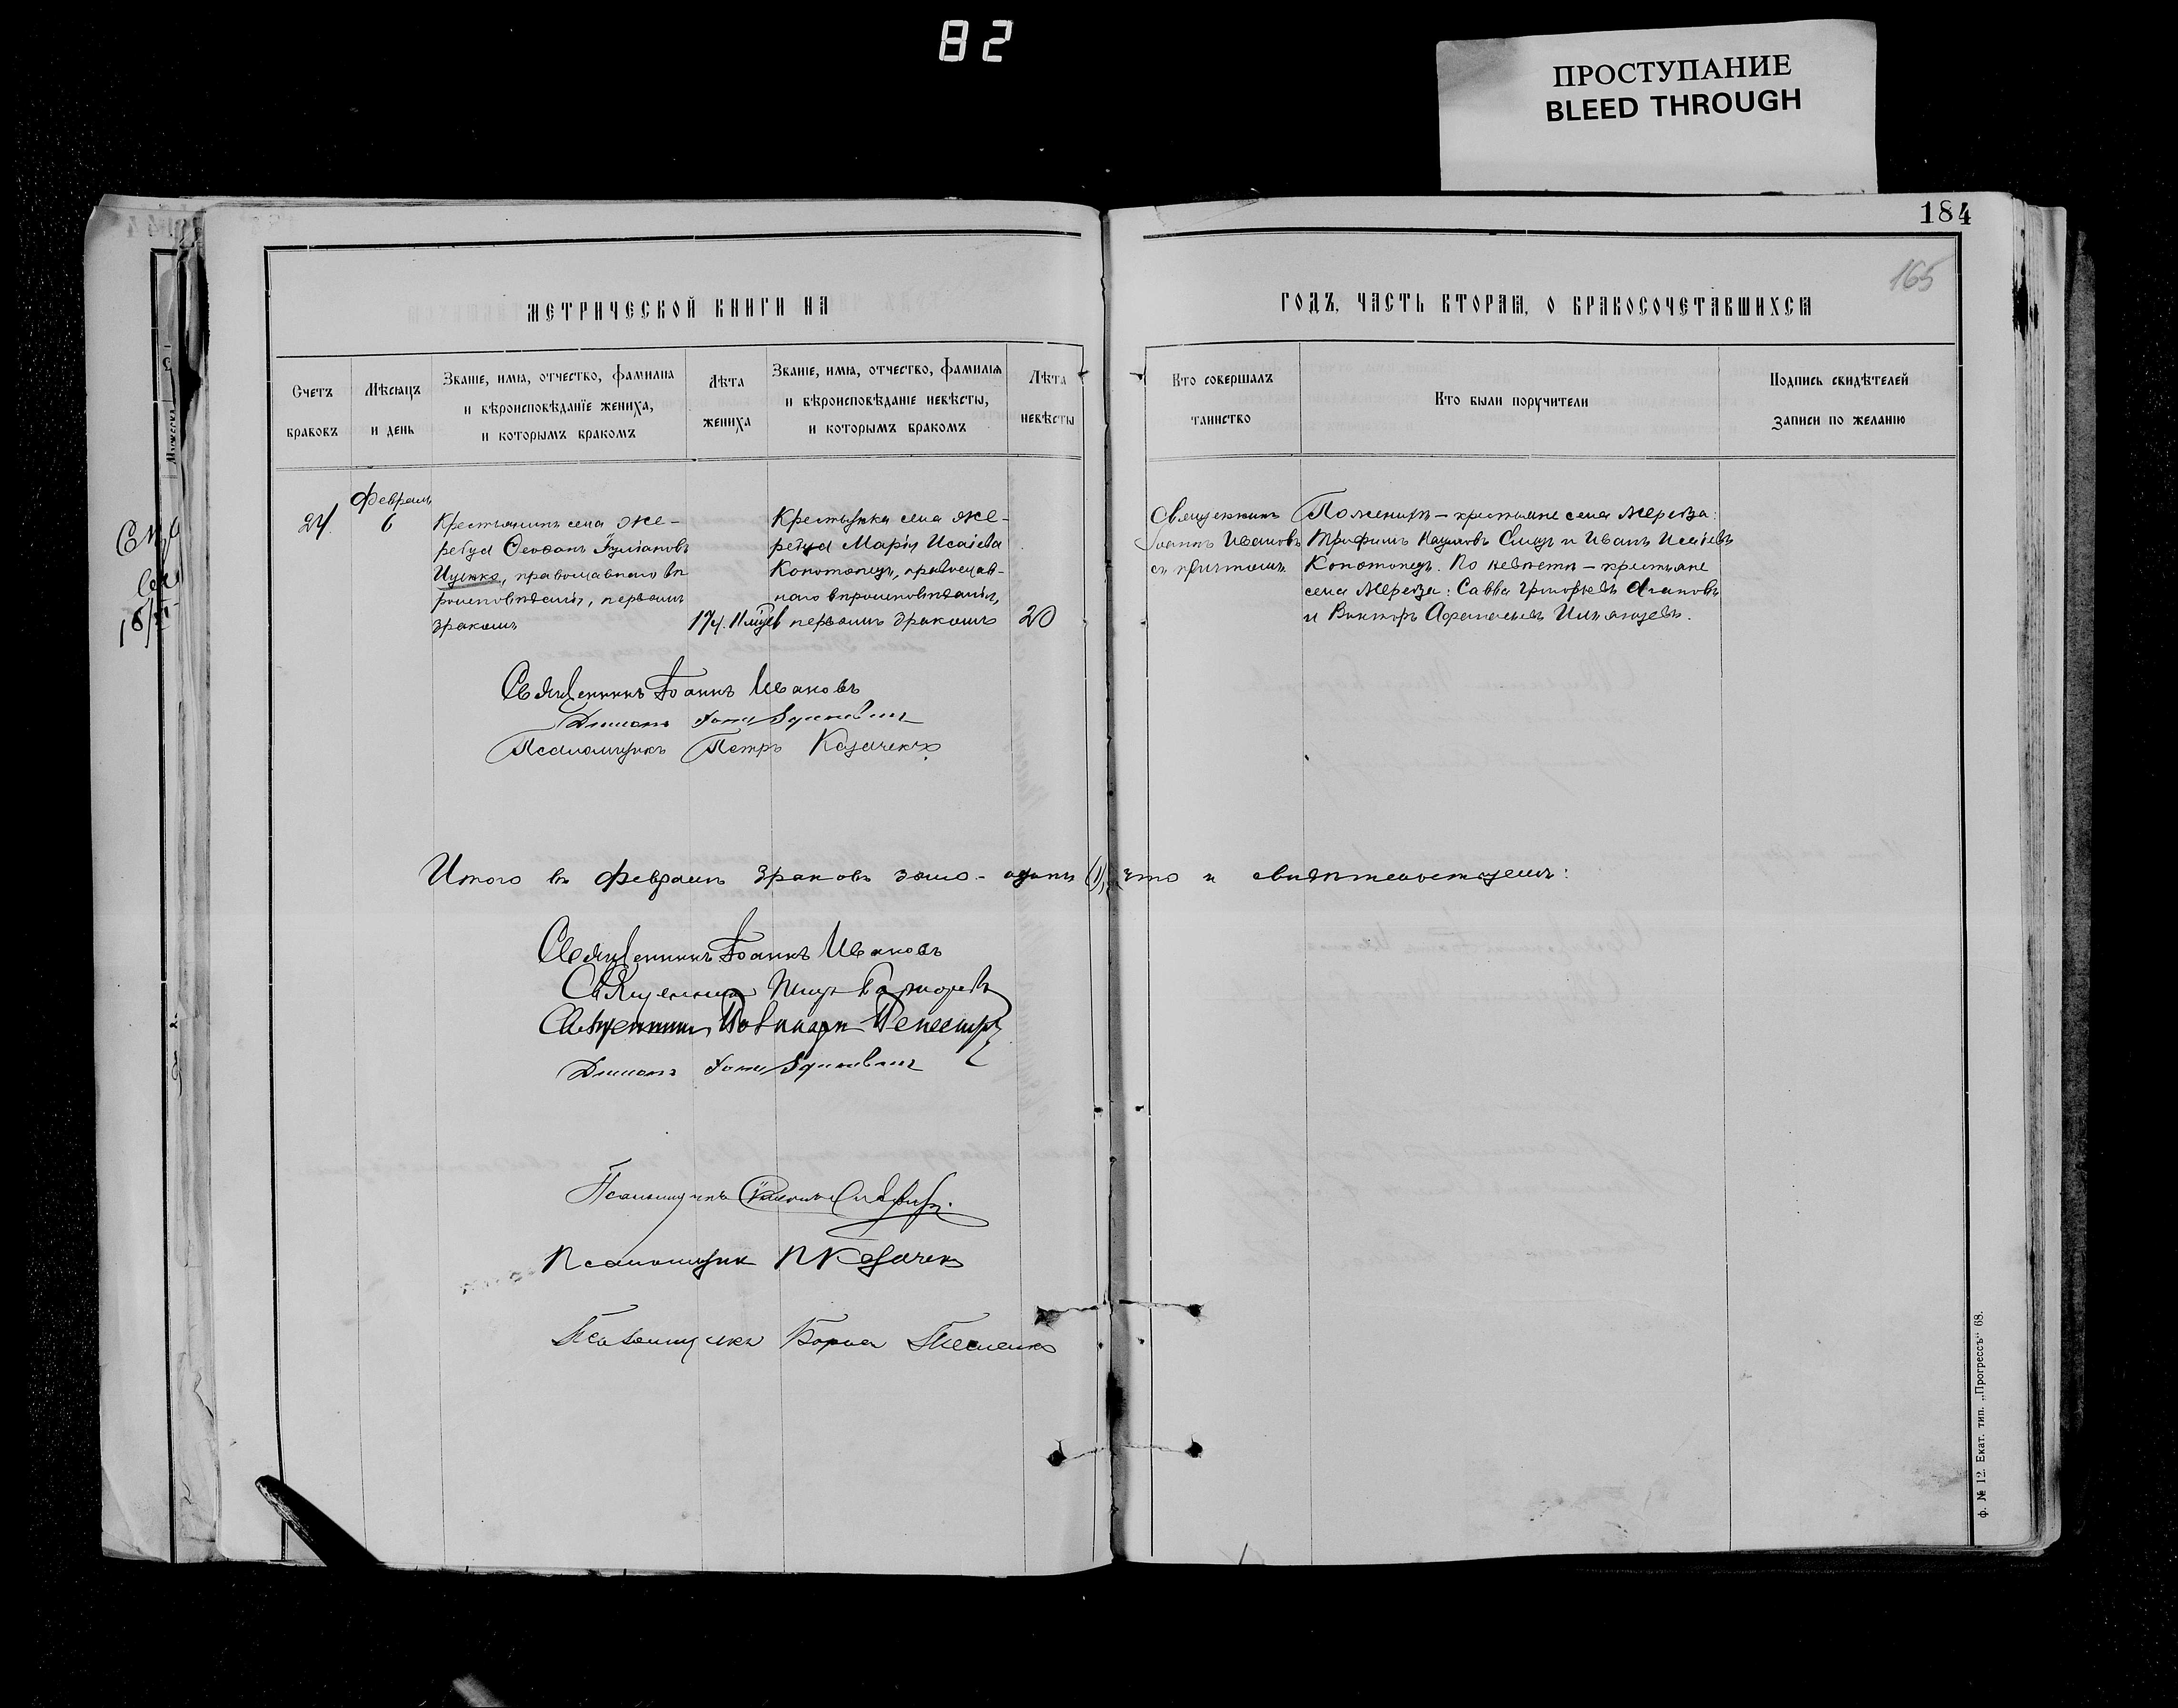 82
ПРОСТУПАНИЕ
BLEED THROUGH
184
165
МЕТРИЧЕСКОЙ КНИГИ НА
ГОДЪ, ЧАСТЬ ВТОРАЯ, О БРАКОСОЧЕТАВШИХСЯ
Счетъ браковъ
Мѣсяцъ и день
Званіе, имя, отчество, фамилія и вѣроисповѣданіе жениха, и которымъ бракомъ
Лѣта жениха
Званіе, имя, отчество, фамилія и вѣроисповѣданіе невѣсты, и которымъ бракомъ
Лѣта невѣсты
Кто совершалъ таинство
Кто были поручители
Подпись свидѣтелей записи по желанію
24.
Февраль
6
Крестьянинъ села Же-
ребца Ѳеофанъ
Ищенко, православнаго вѣ
роисповѣданія, первымъ
бракомъ
17
Крестьянка села Же-
ребца Марія Исаіева
Конотопецъ, православ-
наго вѣроисповѣданія,
первымъ бракомъ
20
Священникъ
Іоаннъ Ивановъ
съ причтомъ.
По женихѣ – крестьяне села Жеребца:
Трифонъ Наумовъ и Иванъ Исаіевъ
Конотопецъ. По невѣстѣ – крестьяне
села Жеребца: Савва Григорьевъ
и Викторъ
Священникъ Іоаннъ Ивановъ
Діаконъ
Псаломщикъ Петръ Казачекъ
Итого въ Февралѣ браковъ было – одинъ (1), что и свидѣтельствуемъ:
Священникъ Іоаннъ Ивановъ
Священникъ
Священникъ
Діаконъ
Псаломщикъ
Псаломщикъ П Казачекъ
Псаломщикъ Борисъ
ф. № 12. Екат. тип. „Прогрессъ“ 68.